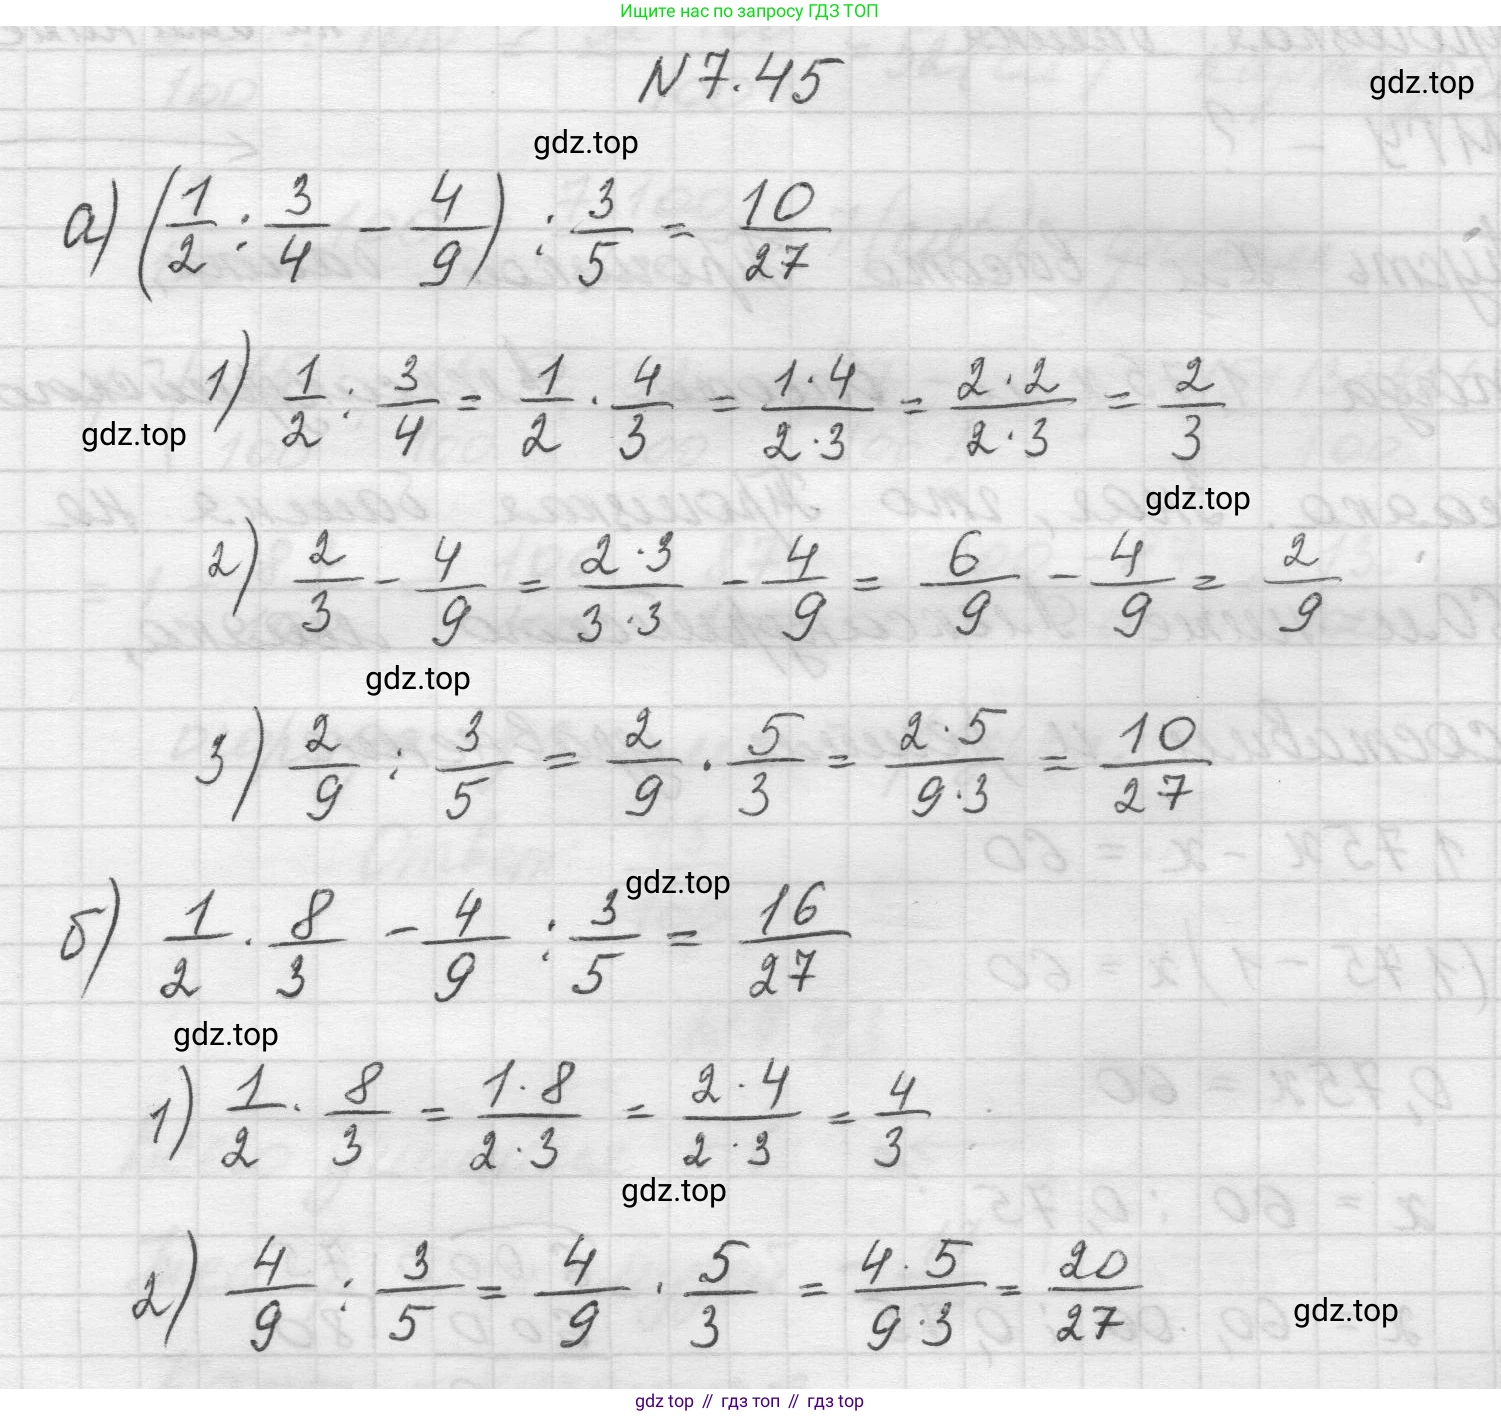 Ищите нас по запросу ГДЗ ТОП
N 7.45
gdz.top
gdz.top
а) (1/2 : 3/4 - 4/9) : 3/5 = 10/27
1) 1/2 : 3/4 = 1/2 · 4/3 = 1·4/2·3 = 2·2/2·3 = 2/3
gdz.top
gdz.top
2) 2/3 - 4/9 = 2·3/3·3 - 4/9 = 6/9 - 4/9 = 2/9
gdz.top
3) 2/9 : 3/5 = 2/9 · 5/3 = 2·5/9·3 = 10/27
gdz.top
б) 1/2 · 8/3 - 4/9 : 3/5 = 16/27
gdz.top
1) 1/2 · 8/3 = 1·8/2·3 = 2·4/2·3 = 4/3
gdz.top
2) 4/9 : 3/5 = 4/9 · 5/3 = 4·5/9·3 = 20/27
gdz.top
gdz top // гдз топ // гдз top